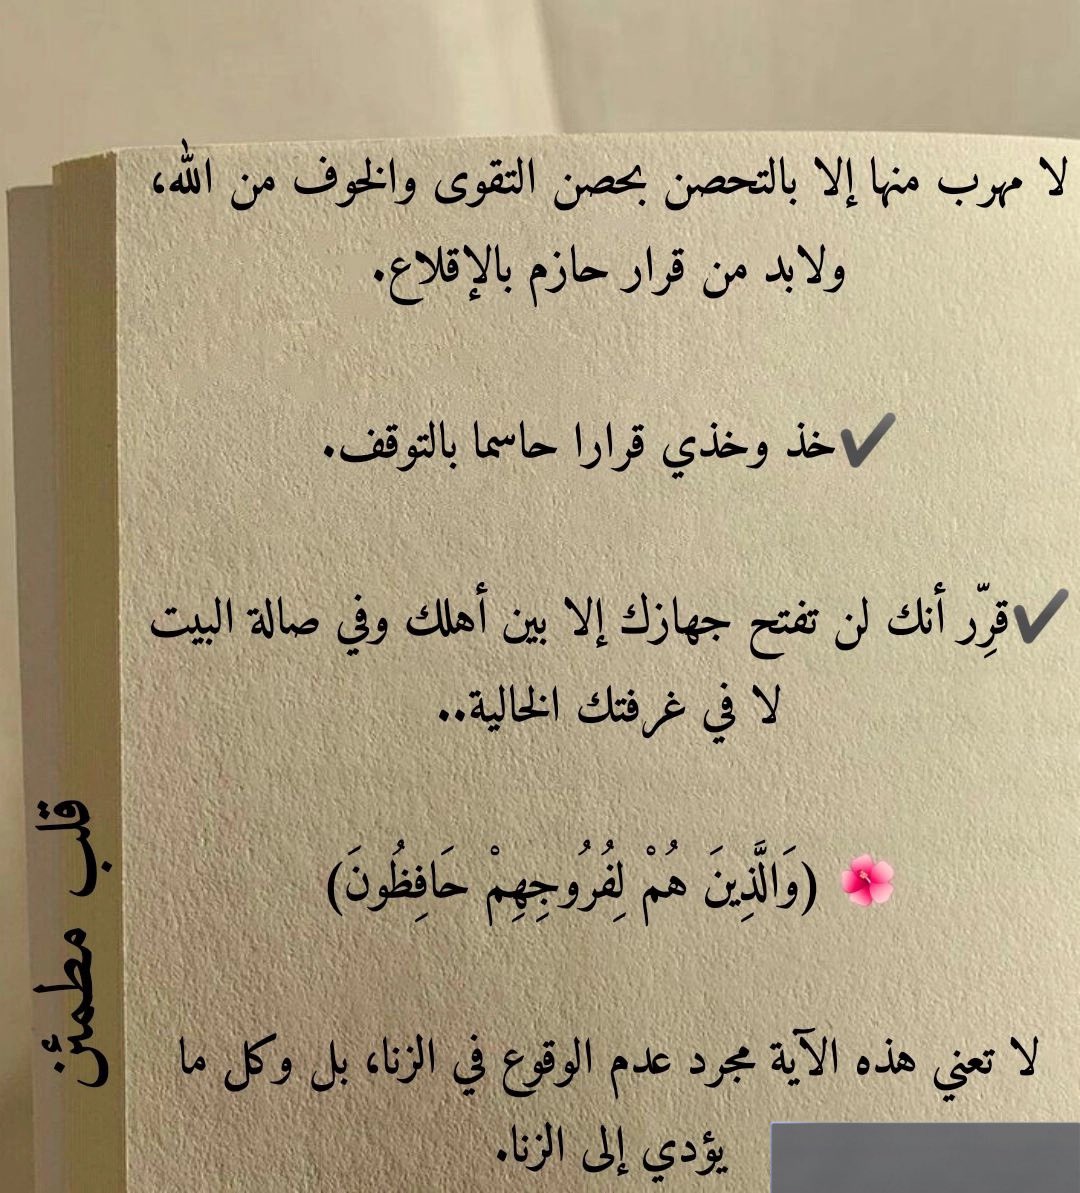 لا مهرب منها إلا بالتحصن بحصن التقوى والخوف من الله،
ولابد من قرار حازم بالإقلاع.
✔خذ وخذي قرارا حاسما بالتوقف.
✔قرِّر أنك لن تفتح جهازك إلا بين أهلك وفي صالة البيت
لا في غرفتك الخالية..
🌺 (وَالَّذِينَ هُمْ لِفُرُوجِهِمْ حَافِظُونَ)
لا تعني هذه الآية مجرد عدم الوقوع في الزنا، بل وكل ما
يؤدي إلى الزنا.
قلب مطمئن